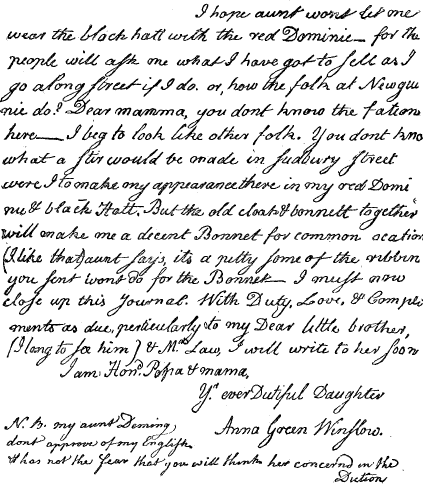 I hope aunt wont let me
wear the black hatt with the red Dominie — for the
people will ask me what I have got to sell as I
go along street if I do. or, how the folk at Newgui
nie do? Dear mamma, you dont know the fation
here — I beg to look like other folk. You dont kno
what a stir would be made in sudbury street
were I to make my appearance there in my red Domi
nie & black Hatt. But the old cloak & bonnett together
will make me a decent Bonnet for common ocation
(I like that) aunt says, its a pitty some of the ribbins
you sent wont do for the Bonnet — I must now
close up this Journal. With Duty, Love, & Comple
ments as due, perticularly to my Dear little brother,
(I long to see him) & Mrs. Law, I will write to her soon
I am Hond. Pappa & mama,
Yr. ever Dutiful Daughter
Anna Green Winslow.
N. B. my aunt Deming,
dont approve of my English.
& has not the fear that you will think her concernd in the
Diction